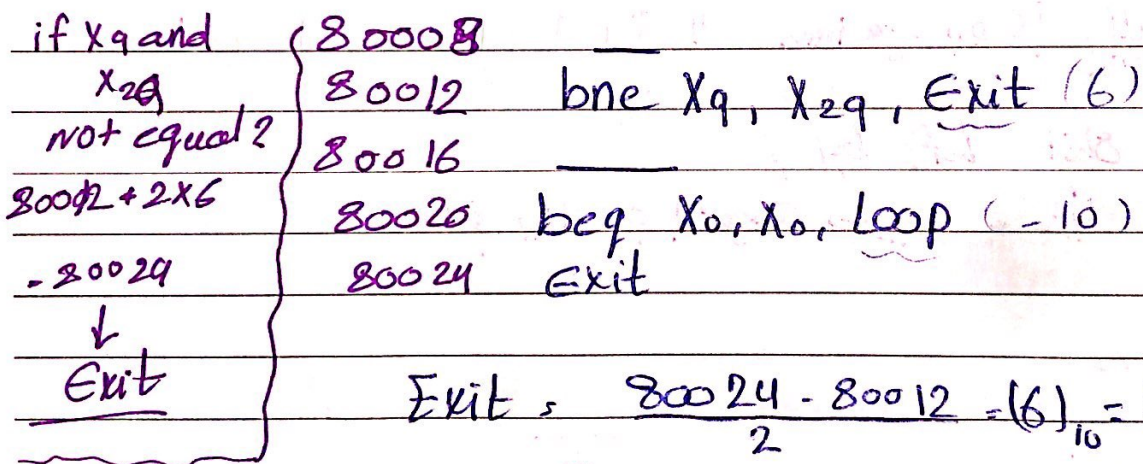 if X9 and
X29
not equal?
80012 + 2×6
= 80024
↓
Exit
80008 ___
80012 bne X9, X29, Exit (6)
80016 ___
80020 beq X0, X0, Loop (-10)
80024 Exit
Exit = 80024 - 80012 / 2 = (6)10 =